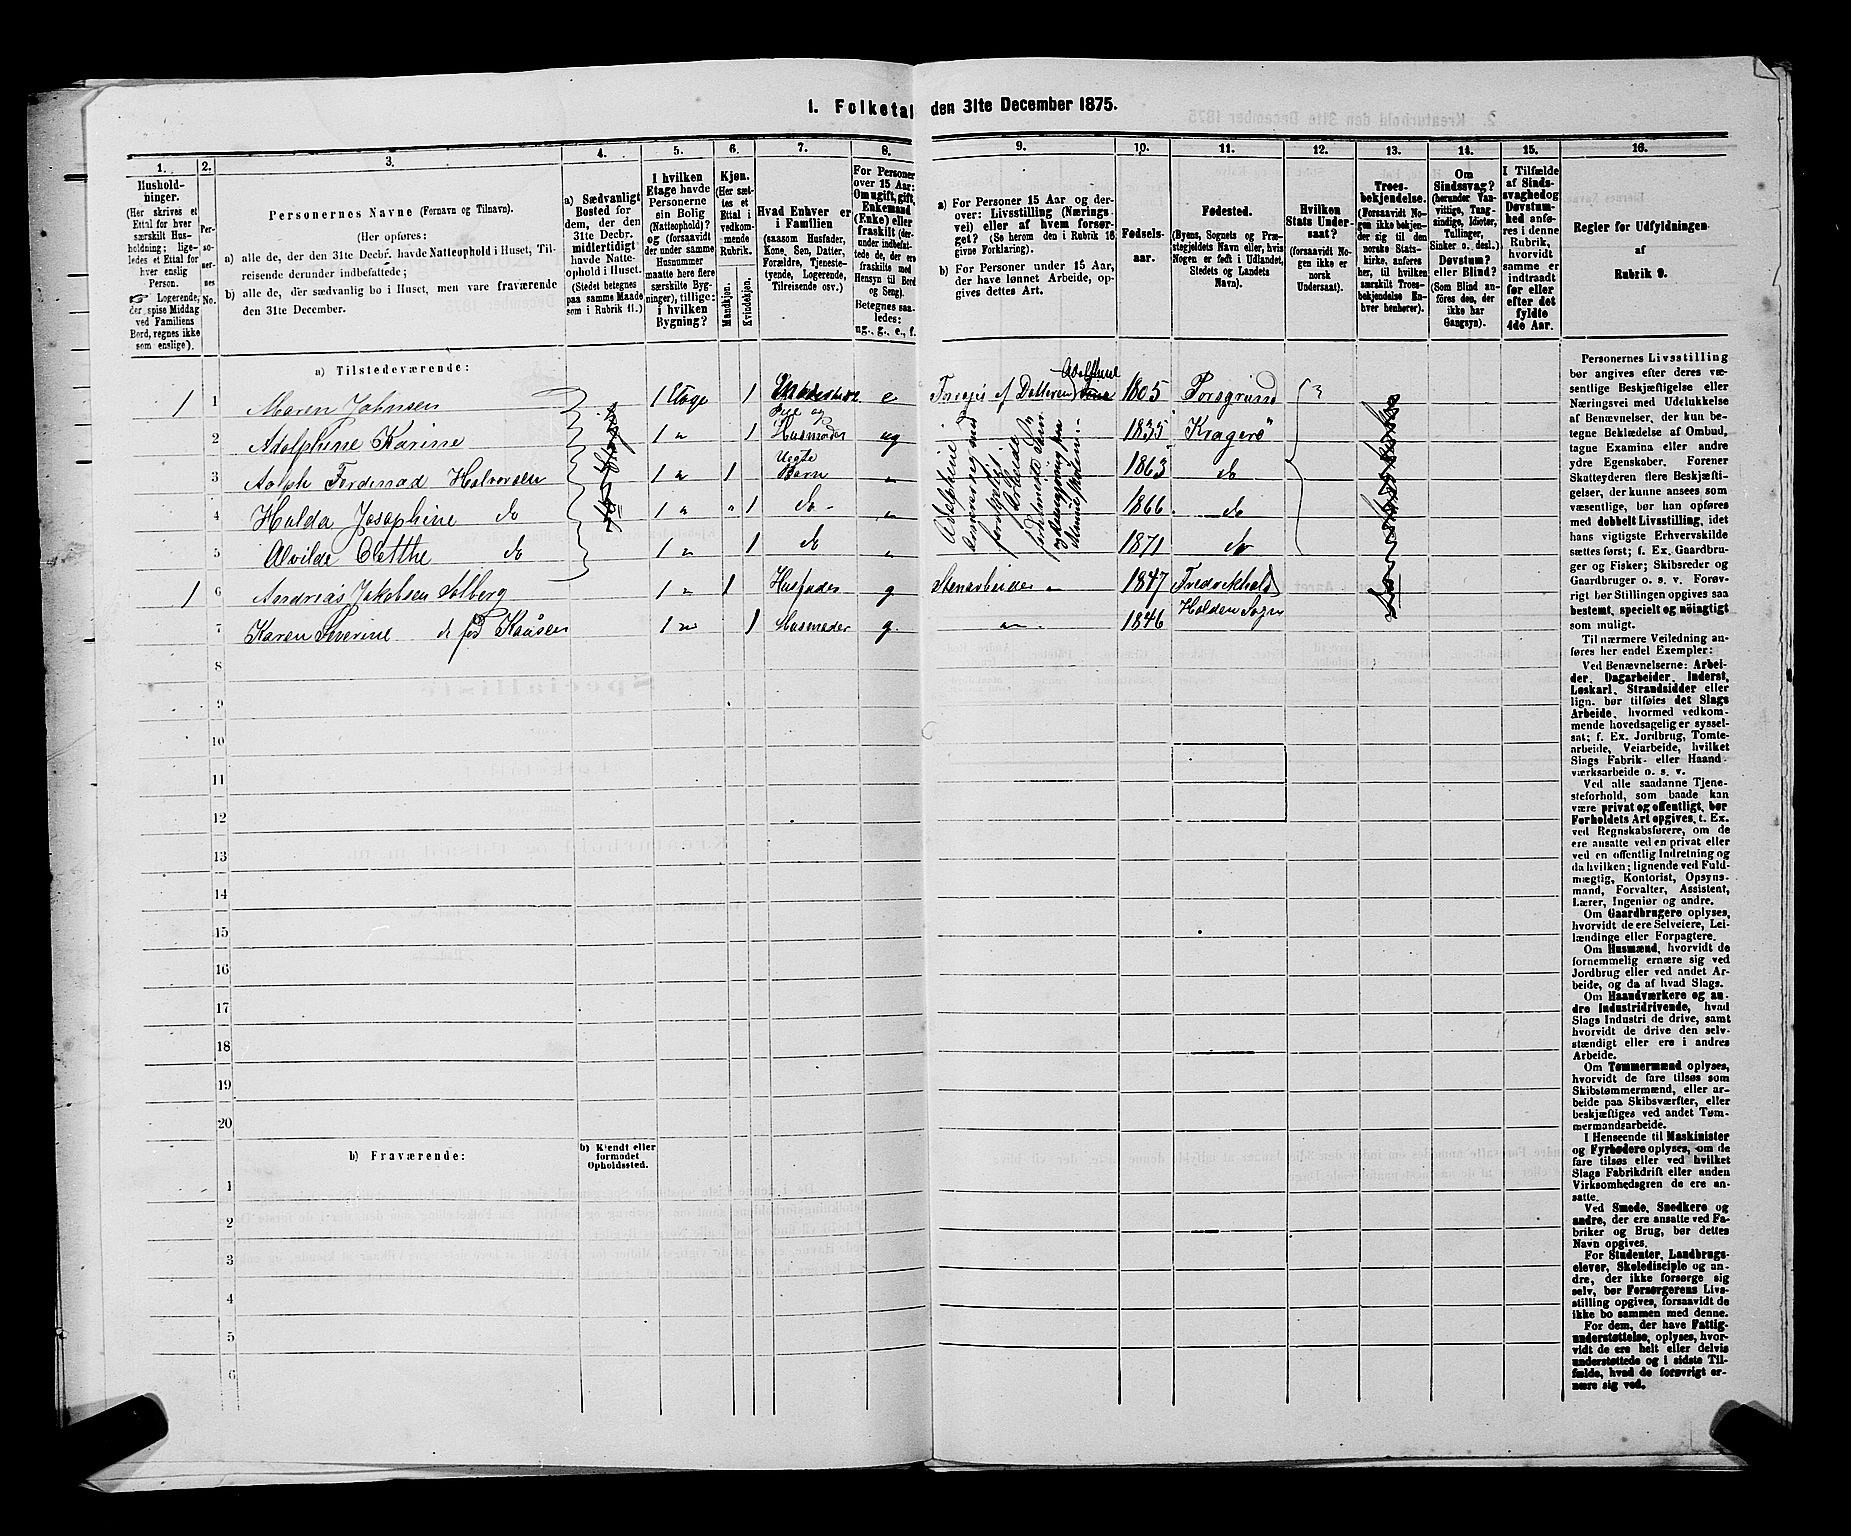 1. Folketal den 31te December 1875.
1. 2. 3. 4. 5. 6. 7. 8. 9. 10. 11. 12. 13. 14. 15. 16.
Hushold-
ninger.
(Her skrives et
Ettal for hver
særskilt Hus-
holdning; lige-
ledes et Ettal for
hver enslig
Person.
☞ Logerende,
der spise Middag
ved Familiens
Bord, regnes ikke
som enslige).
Per-
so-
ner-
nes
No.
Personernes Navne (Fornavn og Tilnavn).
(Her opføres:
a) alle de, der den 31te Decbr. havde Natteophold i Huset, Til-
reisende derunder indbefattede;
b) alle de, der sædvanlig bo i Huset, men vare fraværende
den 31te December.
a) Sædvanligt
Bosted for
dem, der den
31te Decbr.
midlertidigt
havde Natte-
ophold i Huset.
(Stedet betegnes
paa samme Maade
som i Rubrik 11.)
I hvilken
Etage havde
Personerne
sin Bolig
(Natteophold)?
og (forsaavidt
der under samme
Husnummer
maatte høre flere
særskilte Byg-
ninger), tillige:
i hvilken
Bygning?
Kjøn.
(Her sæt-
tes et
Ettal i
vedkom-
mende
Rubrik.
Mandkjøn.
Kvindekjøn.
Hvad Enhver er
i Familien
(saasom Husfader,
Kone, Søn, Datter,
Forældre, Tjeneste-
tyende, Logerende,
Tilreisende osv.)
For Personer
over 15 Aar:
Om ugift, gift,
Enkemand
(Enke) eller
fraskilt (der-
under indbefat-
tede de, der ere
fraskilte med
Hensyn til Bord
og Seng).
Betegnes saa-
ledes:
ug., g., e., f.
a) For Personer 15 Aar og der-
over: Livsstilling (Nærings-
vei) eller af hvem forsør-
get? (Se herom den i Rubrik 16
givne Forklaring).
b) For Personer under 15 Aar,
der have lønnet Arbeide, op-
gives dettes Art.
Fødsels-
aar.
Fødested.
(Byens, Sognets og Præ-
stegjeldets Navn eller, hvis
Nogen er født i Udlandet,
Stedets og Landets
Navn).
Hvilken
Stats Under-
saat?
(forsaavidt No-
gen ikke er
norsk
Undersaat).
Troes-
bekjendelse.
(Forsaavidt No-
gen ikke bekjen-
der sig til den
norske Stats-
kirke, anføres
her, til hvilken
særskilt Troes-
bekjendelse En-
hver henhører).
Om
Sindssvag?
(herunder Van-
vittige, Tung-
sindige, Idioter,
Tullinger,
Sinker o. desl.)
Døvstum?
eller Blind?
(Som Blind an-
føres den, der
ikke har
Gangsyn).
I Tilfælde
af Sinds-
svaghed og
Døvstum-
hed anfø-
res i denne
Rubrik,
hvorvidt
samme er
indtraadt
før eller
efter det
fyldte
4de Aar.
Regler for Udfyldningen
af
Rubrik 9.
a) Tilstedeværende:
1 1 Maren Johnsen 1 Etage 1 e af Datteren Adolphine 1805 Porsgrund
2 Adolphine Karine 1 " 1 Pige og Husmoder ug 1835 Kragerø
3 Adolph Ferdenad Halvorsen 1 " 1 Uegte Barn " 1863 do
4 Hulda Josephine do 1 " 1 do " 1866 do
5 Alvilde do 1 " 1 do " 1871 do
1 6 Andreas Jakobsen Solberg 1 " 1 Husfader g Stenarbeider 1847 Fredrikhald
7 Karen Severine do fød 1 " 1 Husmoder g " 1846 Holden Sogn
Adolphine ernærer sig med
8
9
10
11
12
13
14
15
16
17
18
19
20
b) Fraværende:
b) Kjendt eller
formodet
Opholdssted.
1
2
3
4
5
6
Personernes Livsstilling
bør angives efter deres væ-
sentlige Beskjæftigelse eller
Næringsvei med Udelukkelse
af Benævnelser, der kun be-
tegne Beklædelse af Ombud,
tagne Examina eller andre
ydre Egenskaber. Forener
Skatteyderen flere Beskjæfti-
gelser, der kunne ansees som
væsentlige, bør han opføres
med dobbelt Livsstilling, idet
hans vigtigste Erhvervskilde
sættes først; f. Ex. Gaardbru-
ger og Fisker; Skibsreder og
Gaardbruger o. s. v. Forøv-
rigt bør Stillingen opgives saa
bestemt, specielt og nøiagtigt
som muligt.
Til nærmere Veiledning an-
føres her endel Exempler:
Ved Benævnelserne: Arbei-
der, Dagarbeider, Inderst,
Løskarl, Strandsidder eller
lign. bør tilføies det Slags
Arbeide, hvormed vedkom-
mende hovedsagelig er syssel-
sat; f. Ex. Jordbrug, Tomte-
arbeide, Veiarbeide, hvilket
Slags Fabrik- eller Haand-
værksarbeide o. s. v.
Ved alle saadanne Tjene-
steforhold, som baade kan
være privat og offentligt, bør
Forholdets Art opgives, t. Ex.
ved Regnskabsførere, om de
ere ansatte ved en privat eller
ved en offentlig Indretning og
da hvilken; lignende ved Fuld-
mægtig, Kontorist, Opsyns-
mand, Forvalter, Assistent,
Lærer, Ingeniør og andre.
Om Gaardbrugere oplyses,
hvorvidt de ere Selveiere, Lei-
lændinge eller Forpagtere.
Om Husmænd, hvorvidt de
fornemmelig ernære sig ved
Jordbrug eller ved andet Ar-
beide, og da af hvad Slags.
Om Haandværkere og an-
dre Industridrivende, hvad
Slags Industri de drive, samt
hvorvidt de drive den selv-
stændigt eller ere i andres
Arbeide.
Om Tømmermænd oplyses,
hvorvidt de fare tilsøs som
Skibstømmermænd, eller ar-
beide paa Skibsværfter, eller
beskjæftiges ved andet Tøm-
mermandsarbeide.
I Henseende til Maskinister
og Fyrbødere oplyses, om de
fare tilsøs eller ved hvilket
Slags Fabrikdrift eller anden
Virksomhedsgren de ere an-
satte.
Ved Smede, Snedkere og
andre, der ere ansatte ved Fa-
briker og Brug, bør dettes
Navn opgives.
For Studenter, Landbrugs-
elever, Skoledisciple og an-
dre, der ikke forsørge sig
selv, bør Forsørgerens Livs-
stilling opgives, forsaavidt de
ikke bo sammen med denne.
For dem, der have Fattig-
understøttelse, oplyses, hvor-
vidt de ere helt eller delvis
understøttede og i sidste Til-
fælde, hvad de forøvrigt er-
nære sig ved.